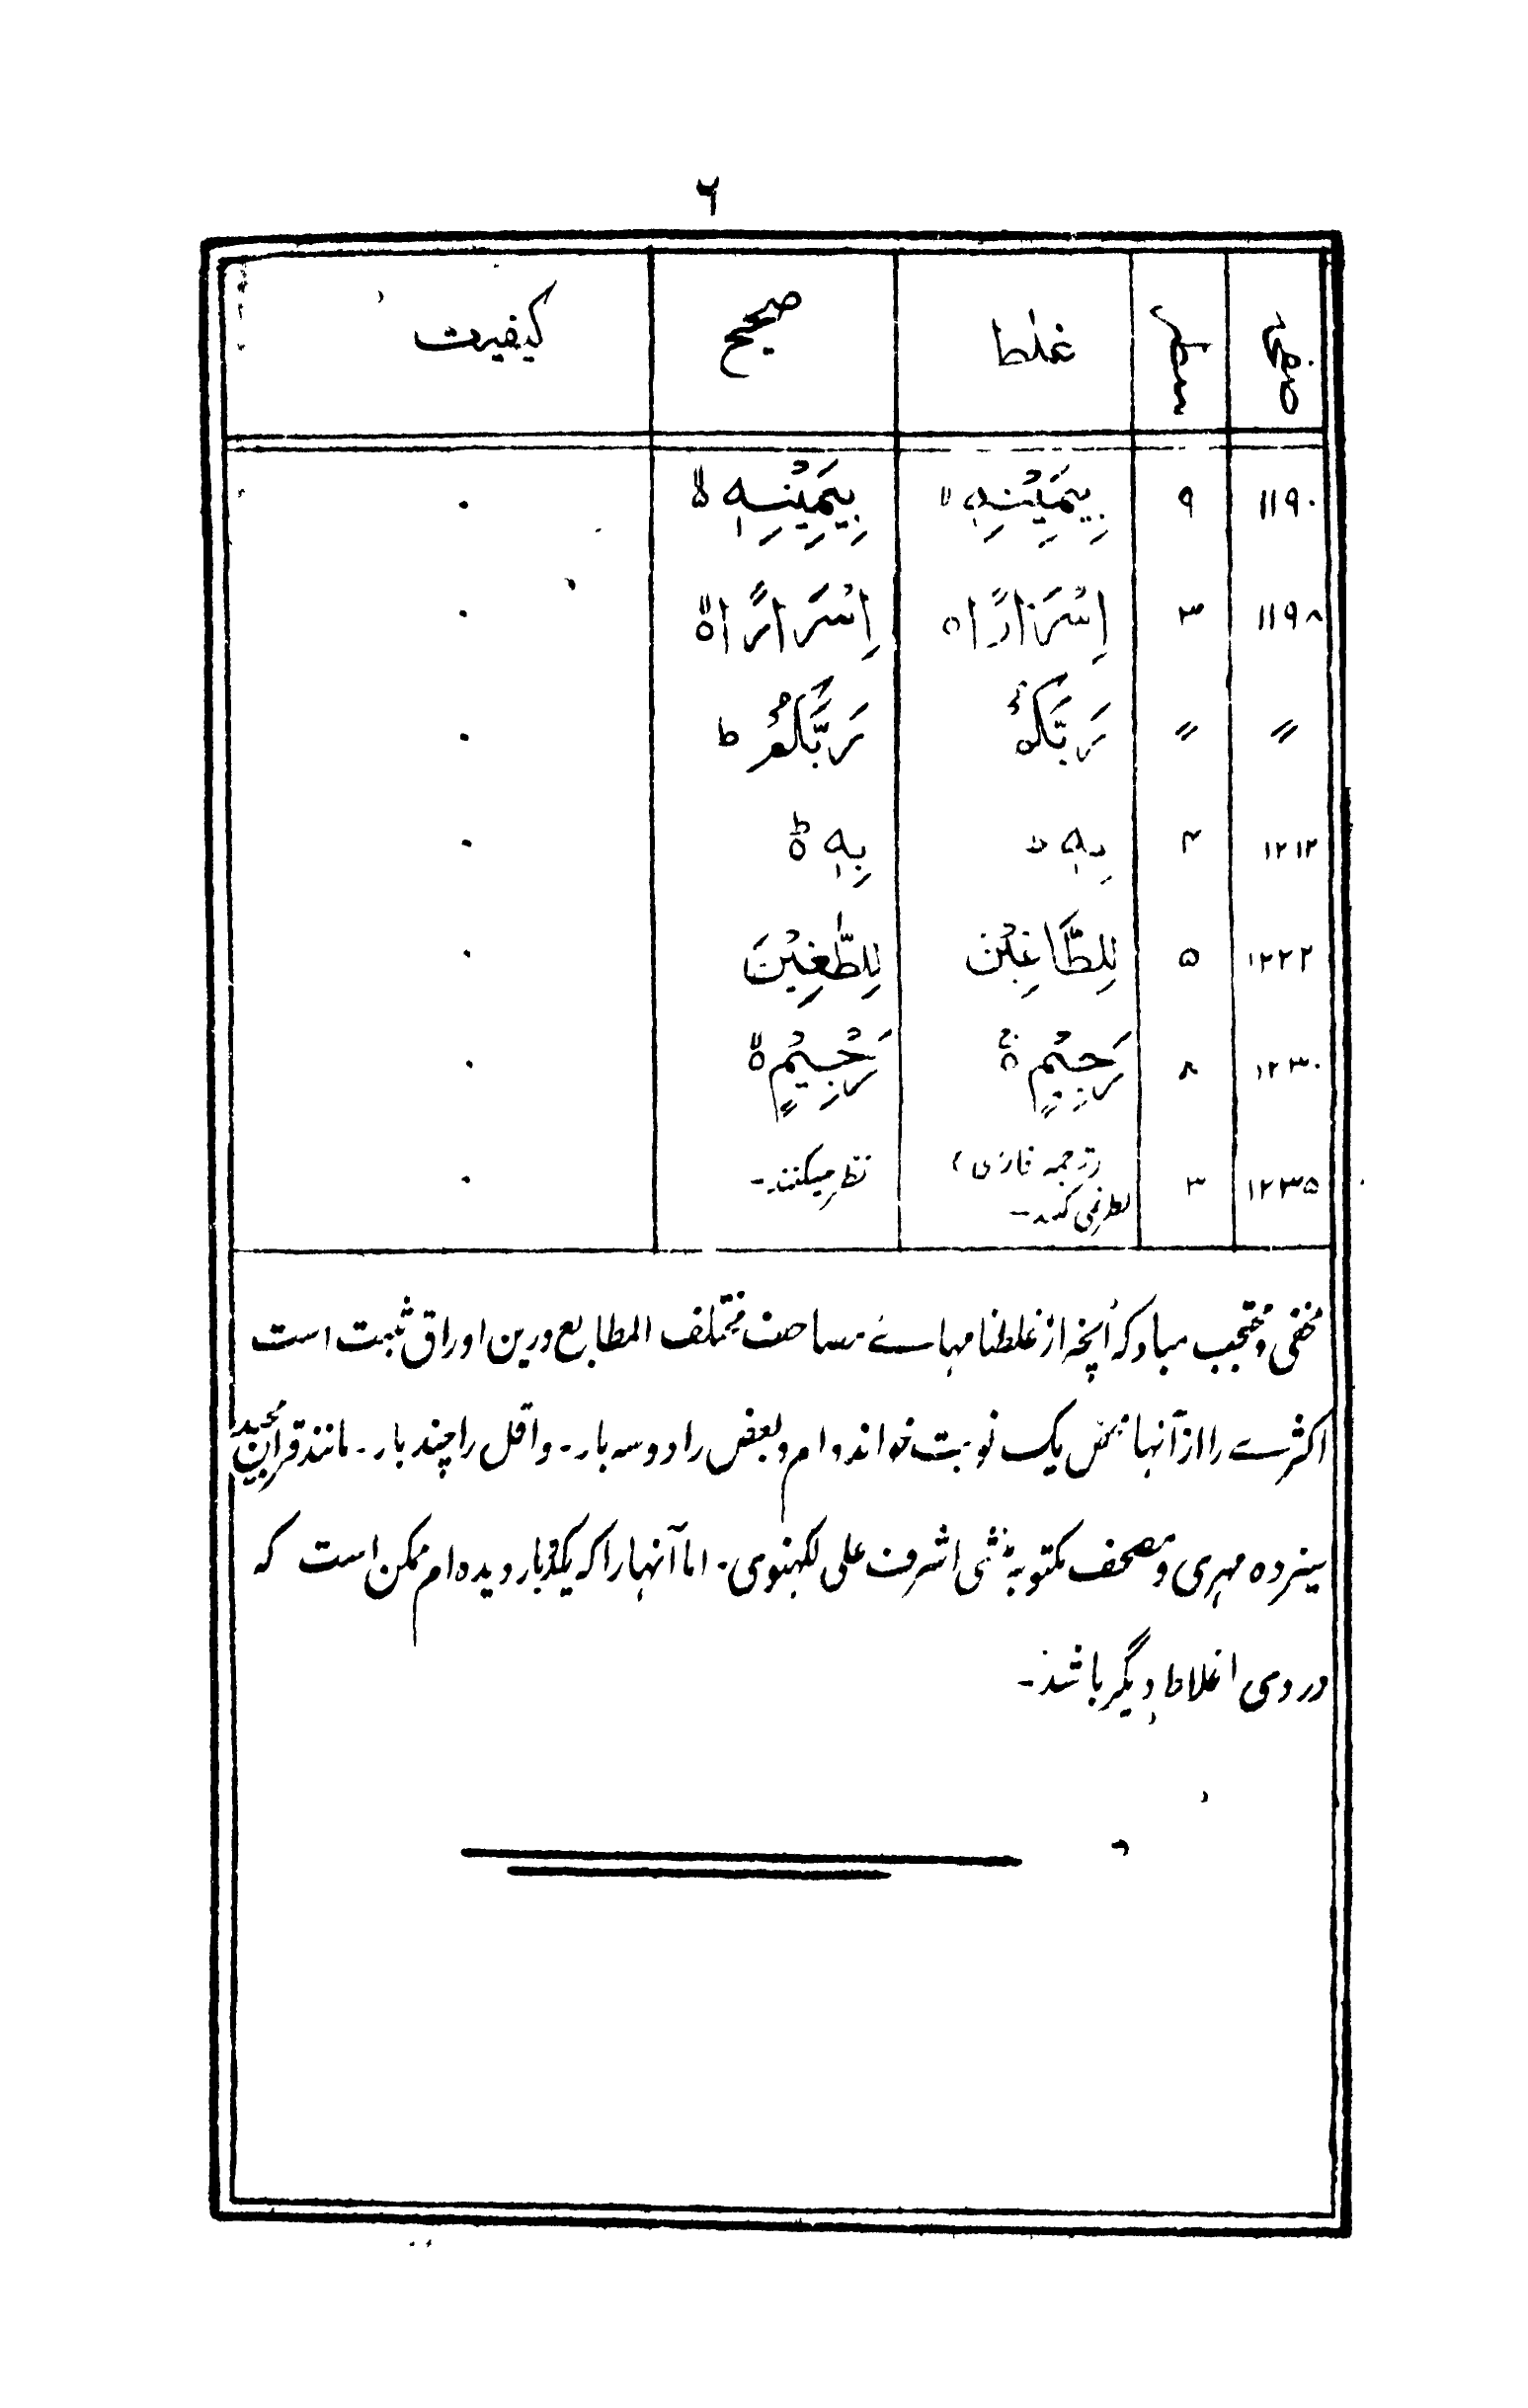 ۶
صفحہ سطر غلط صحیح کیفیت
۱۱۹۰ ۹ بِيَمِيْنِهٖ ۙ بِيَمِيْنِهٖ ۙ۵ ۰
۱۱۹۸ ۳ اِسْرَارًا ہ اِسْرَارًا ۙ۵ ۰
〃 〃 رَبَّكُمْ رَبَّكُمْ ط ۰
۱۲۱۲ ۴ بِهٖ بِهٖ ۵ؕ ۰
۱۲۲۲ ۵ لِلطَّاغِيْن لِلطّٰغِيْنَ ۰
۱۲۳۰ ۸ رَجِيْمٍ ۵ۚ رَجِيْمٍ ۵ۙ ۰
۱۲۳۵ ۳ (ترجمہ فارسی) نظر میکنند۔ ۰
نظر نمی کنند۔
مخفی و محتجب مباد کہ آنچہ از غلطنامہاے مصاحف مختلف المطابع درین اوراق ثبت است
اکثرے را از آنہا محض یک نوبت خواندہ ام و بعض را دو سہ بار۔ و اقل را چند بار۔ مانند قرآن مجید
سیزدہ مہری و مصحف مکتوبہ منشی اشرف علی لکہنوی۔ اما آنہا را کہ یکبار دیدہ ام ممکن است کہ
در وی اغلاط دیگر باشد۔